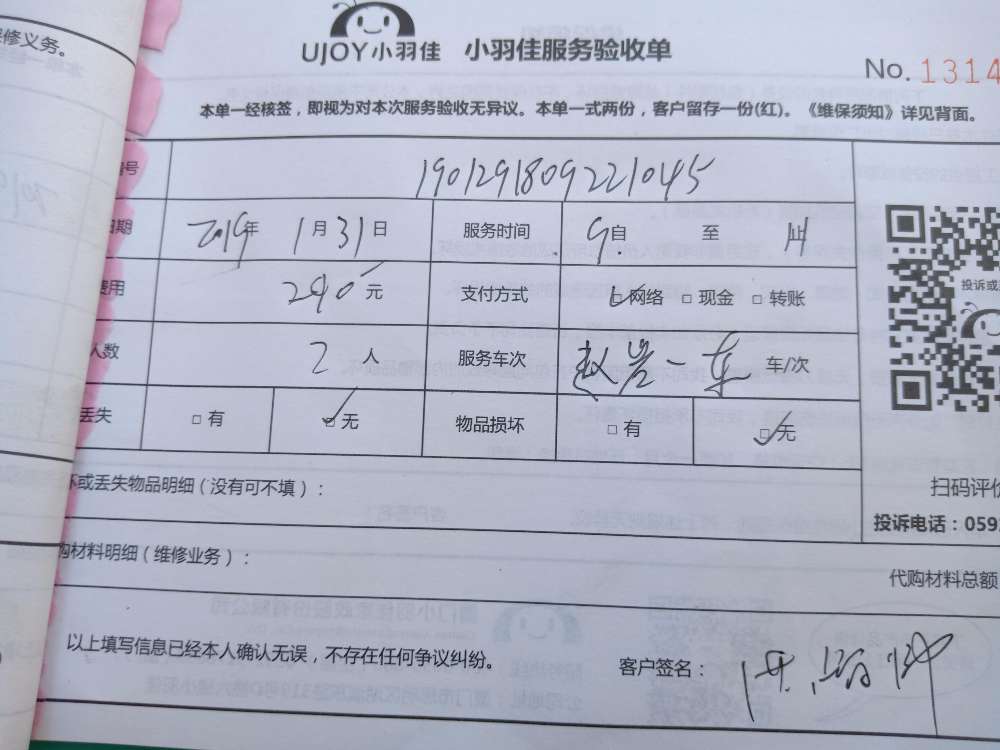 修义务。
UJOY小羽佳 小羽佳服务验收单
No. 1314
本单一经核签，即视为对本次服务验收无异议。本单一式两份，客户留存一份(红)。《维保须知》详见背面。
号 190129180922104​5
日期 2019年 1月31日 服务时间 9自 至
费用 240元 支付方式 □网络 □现金 □转账
投诉或
人数 2 人 服务车次 赵岩一车 车/次
丢失 □有 □无 物品损坏 □有 □无
坏或丢失物品明细（没有可不填）：
扫码评价
投诉电话：059
购材料明细（维修业务）：
代购材料总额
以上填写信息已经本人确认无误，不存在任何争议纠纷。
客户签名：